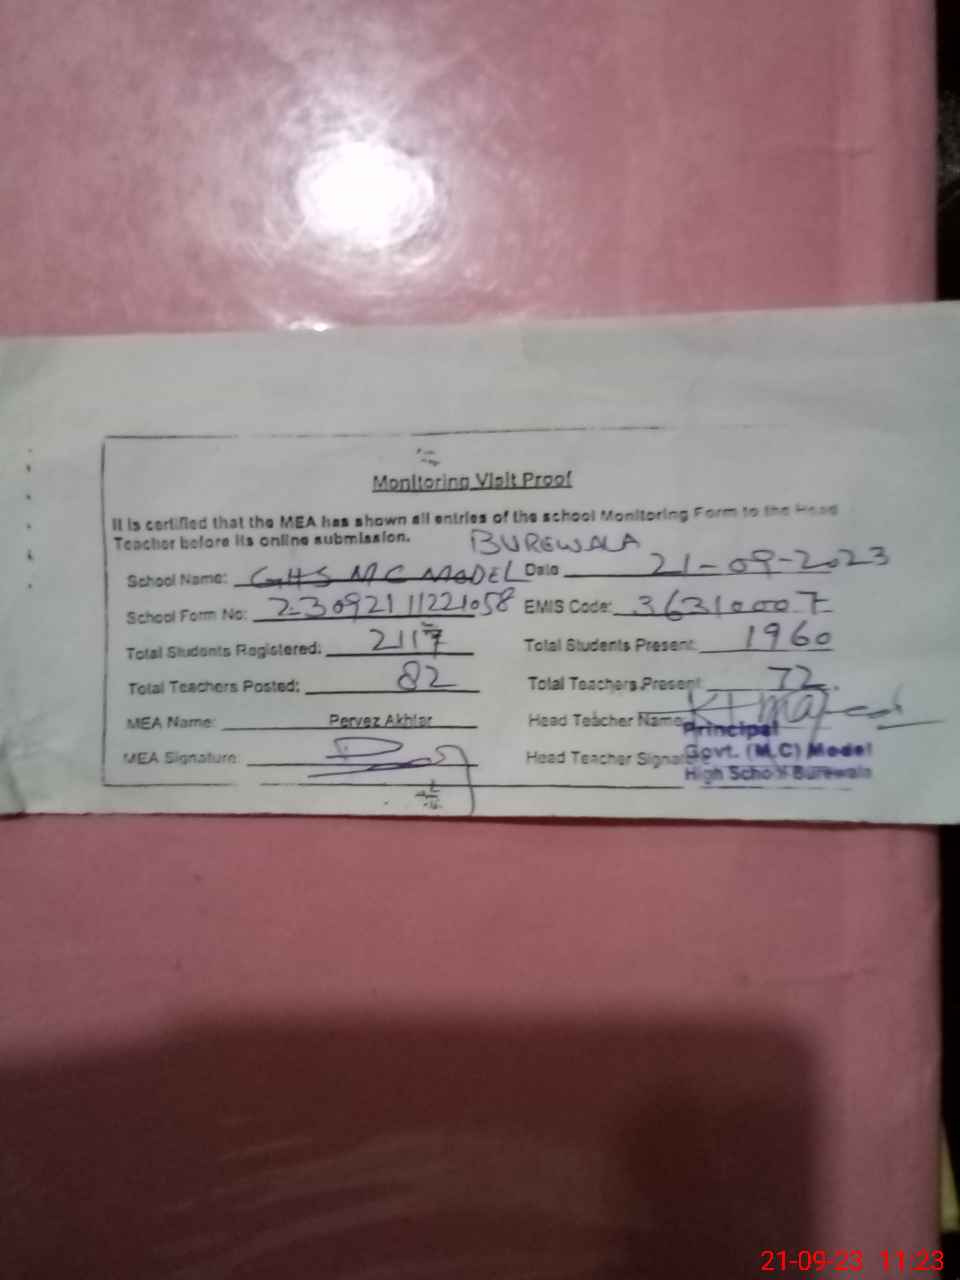 Monitoring Visit Proof
It is certified that the MEA has shown all entries of the school Monitoring Form to the Head
Teacher before its online submission.
BUREWALA
School Name: GHS MC MODEL Date 21-09-2023
School Form No: 2309211221058 EMIS Code: 36310007
Total Students Registered: 2117 Total Students Present: 1960
Total Teachers Posted: 82 Total Teachers Present 72
MEA Name: Pervez Akhtar Head Teacher Name:
MEA Signature: Head Teacher Signature
Principal
Govt. (M.C) Model
High School Burewala
21-09-23 11:23